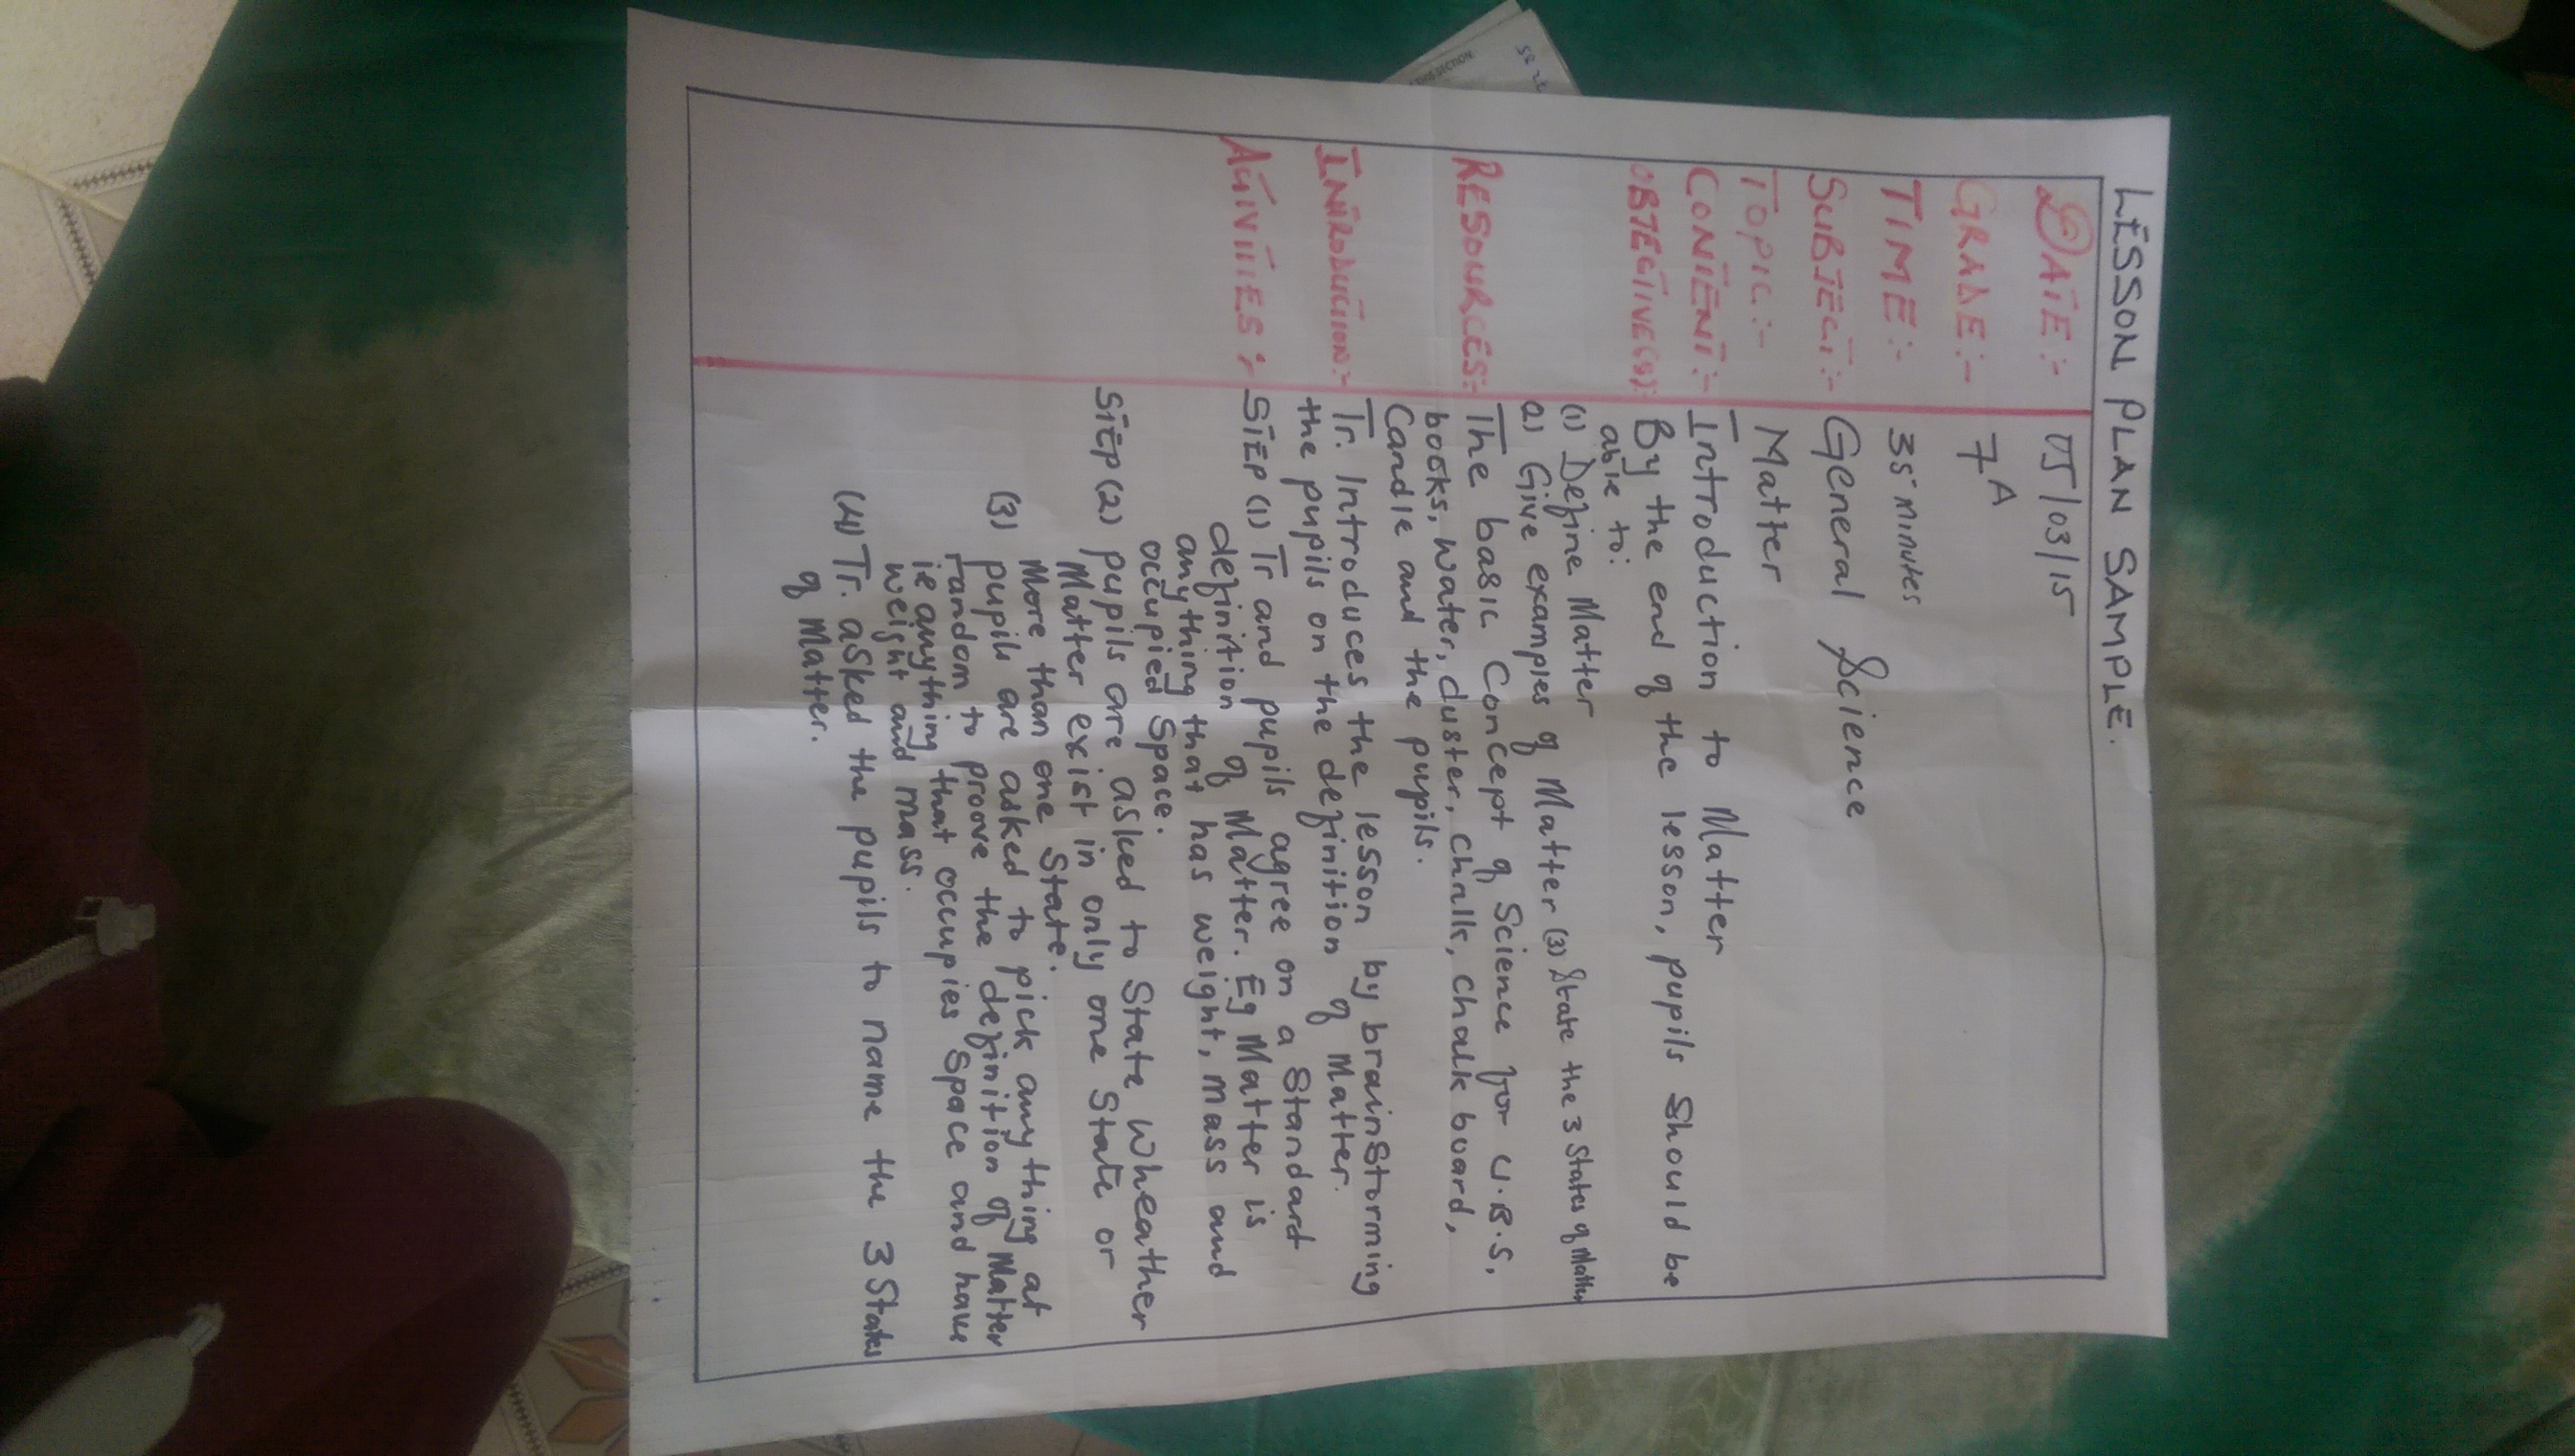 LESSON PLAN SAMPLE.
DATE:- 05/03/15
GRADE:- 7A
TIME:- 35 minutes
SUBJECT:- General Science
TOPIC:- Matter
CONTENT:- Introduction to Matter
OBJECTIVE(S):- By the end of the lesson, pupils should be
able to:
(1) Define Matter
2) Give examples of Matter (3) State the 3 States of Matter
RESOURCES:- The basic Concept of Science for U.B.S,
books, water, duster, Chalk, Chalk board,
Candle and the pupils.
INTRODUCTION:- Tr. Introduces the lesson by brainstorming
the pupils on the definition of Matter.
ACTIVITIES:- STEP (1) Tr and pupils agree on a Standard
definition of Matter. Eg Matter is
anything that has weight, mass and
occupied Space.
STEP (2) pupils are asked to State wheather
Matter exist in only one State or
More than one State.
(3) pupils are asked to pick anything at
random to proove the definition of Matter
ie anything that occupies space and have
weight and mass.
(4) Tr. asked the pupils to name the 3 States
of Matter.